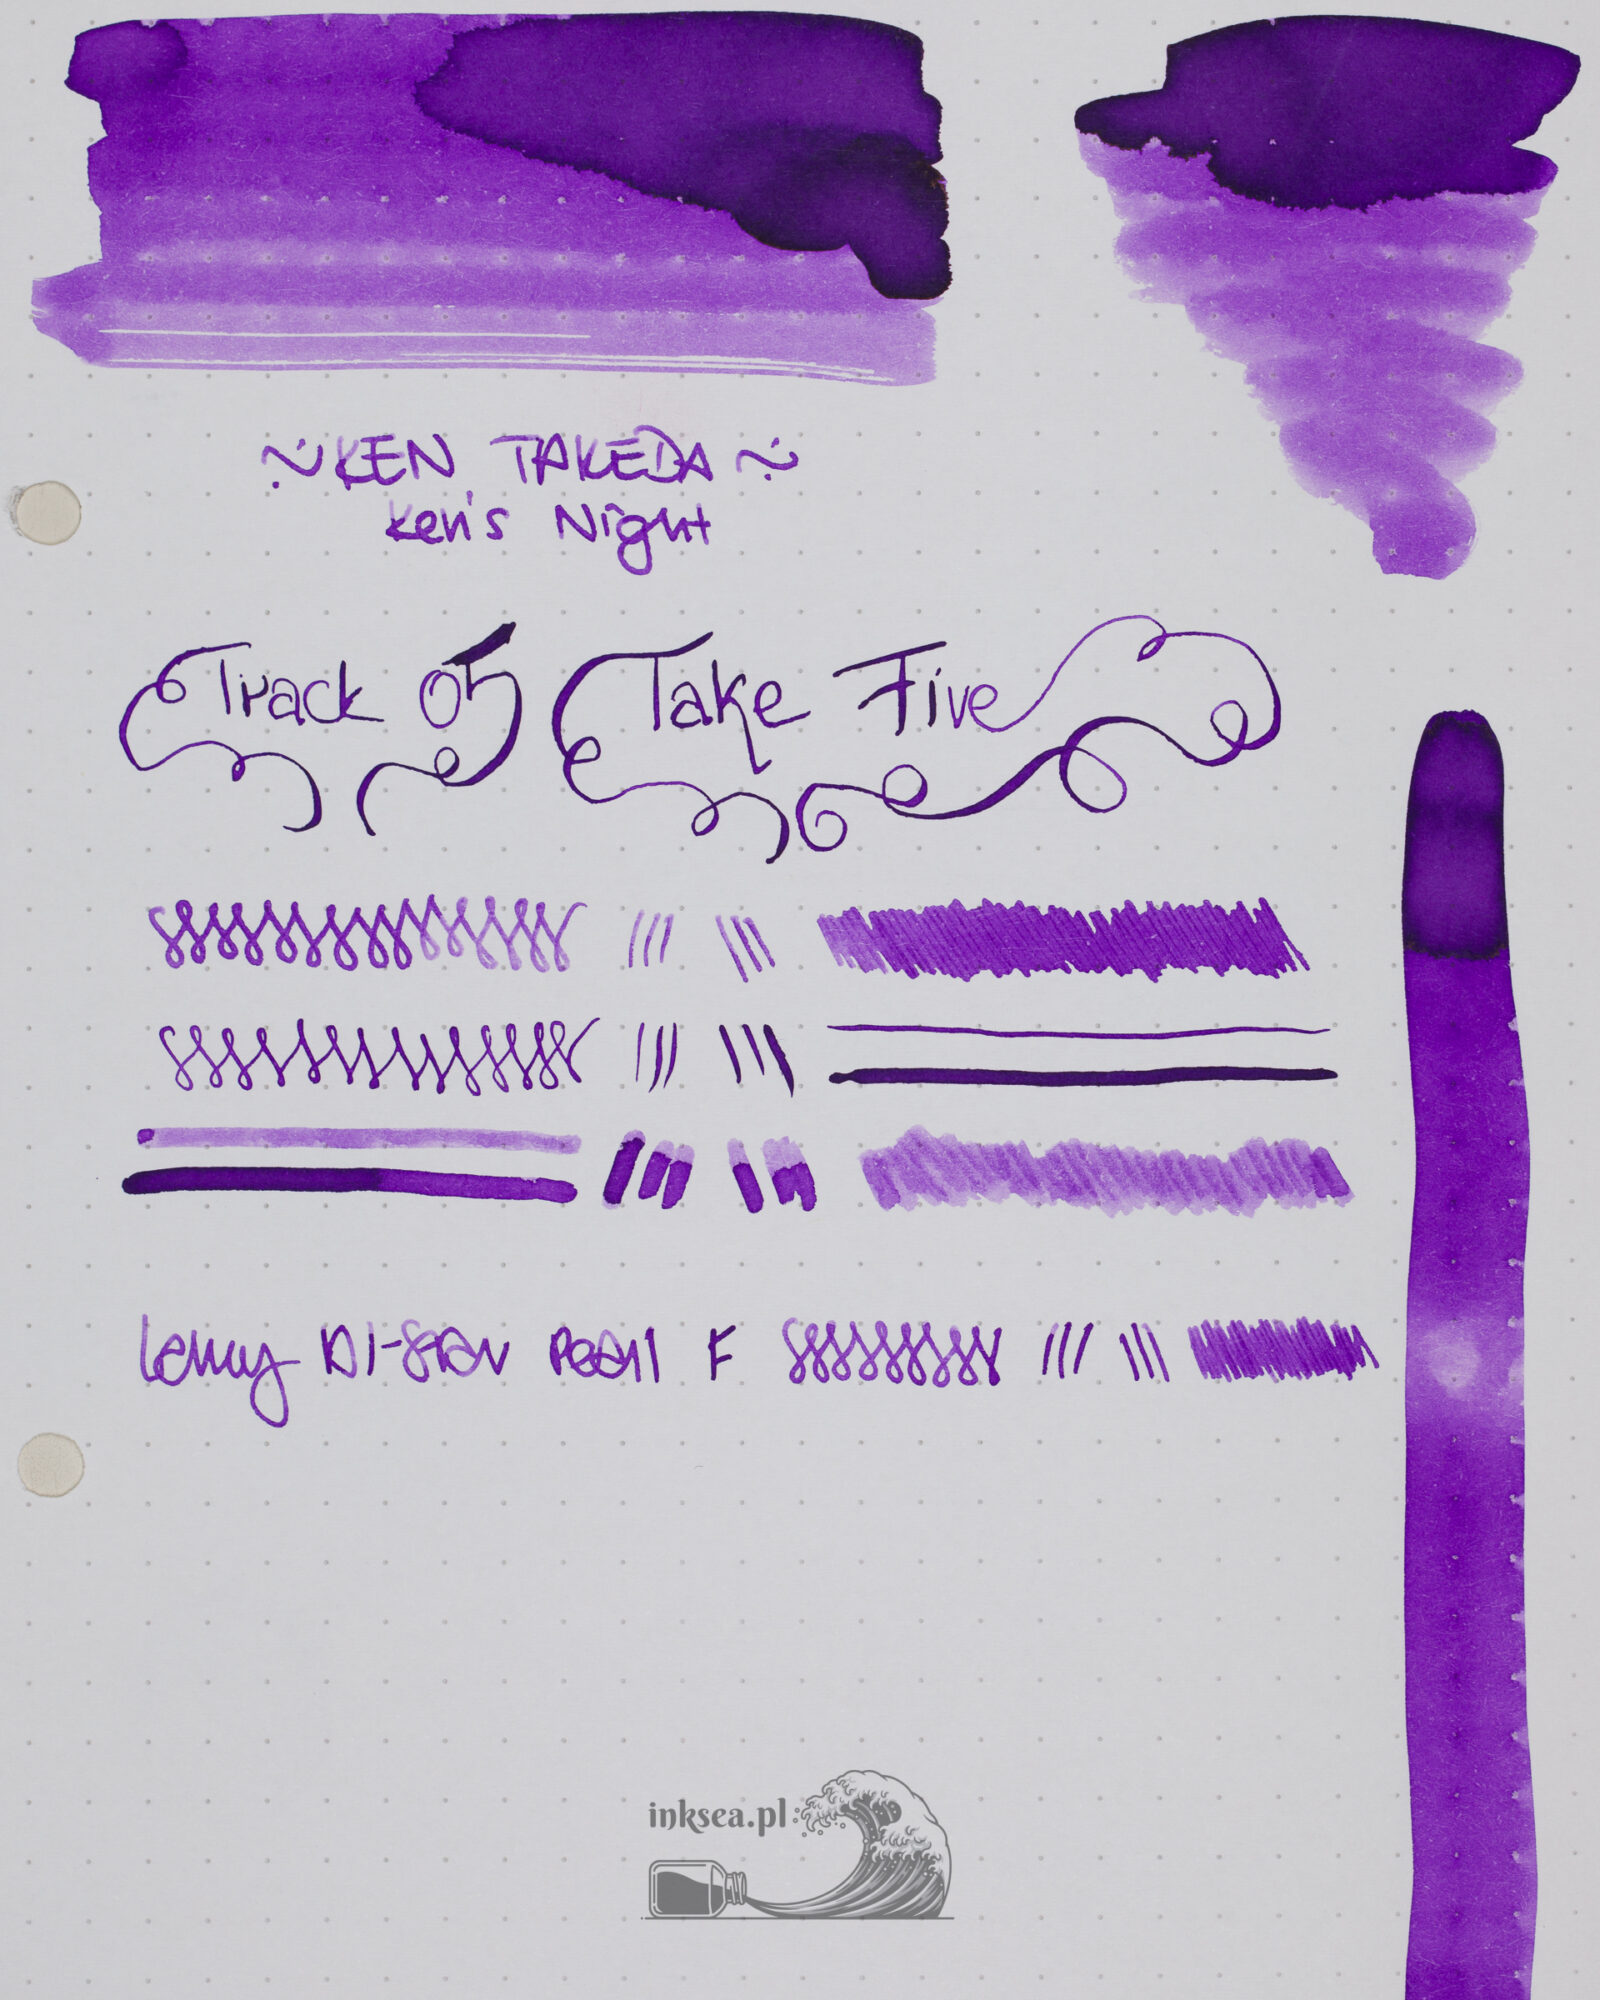 ~ KEN TAKEDA ~
Ken's Night
Track 05 Take Five
Lamy Al-Star Pearl F
inksea.pl